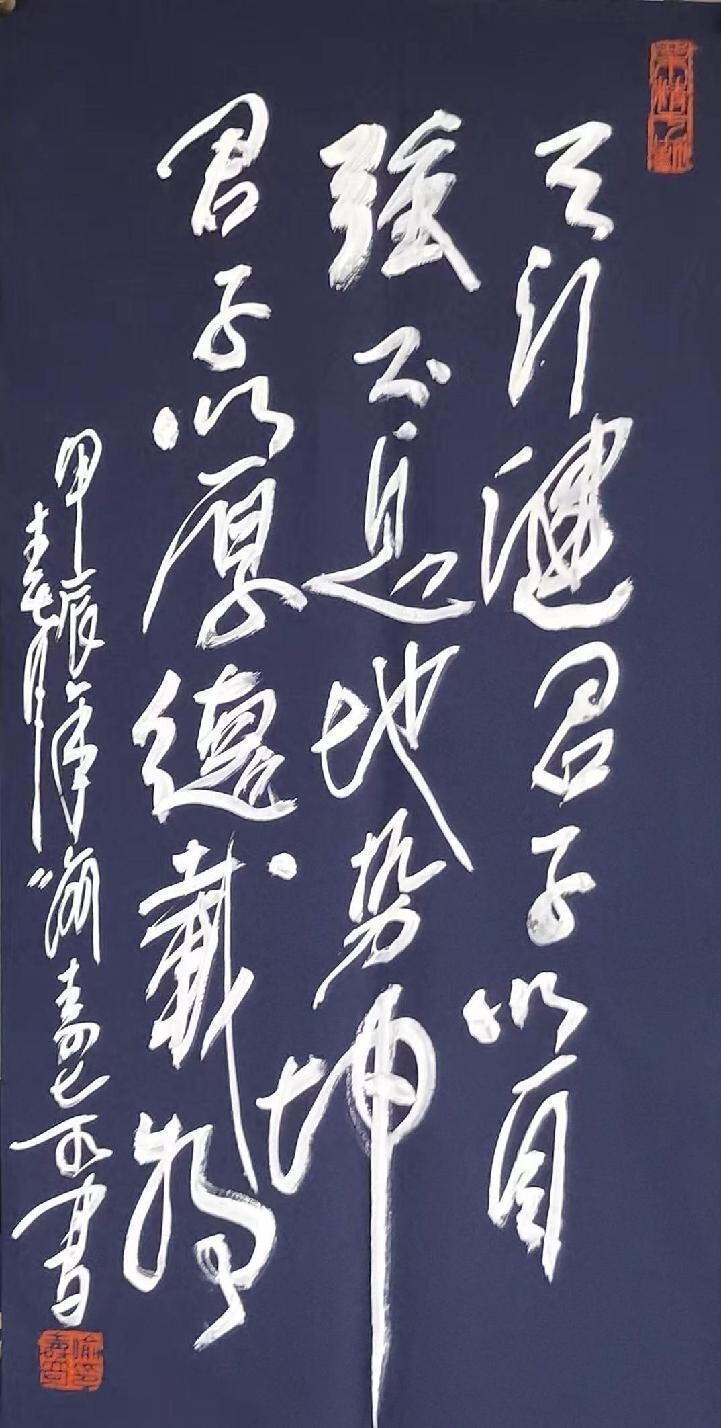 天行健君子以自
强不息地势坤
君子以厚德载物
甲辰年
书